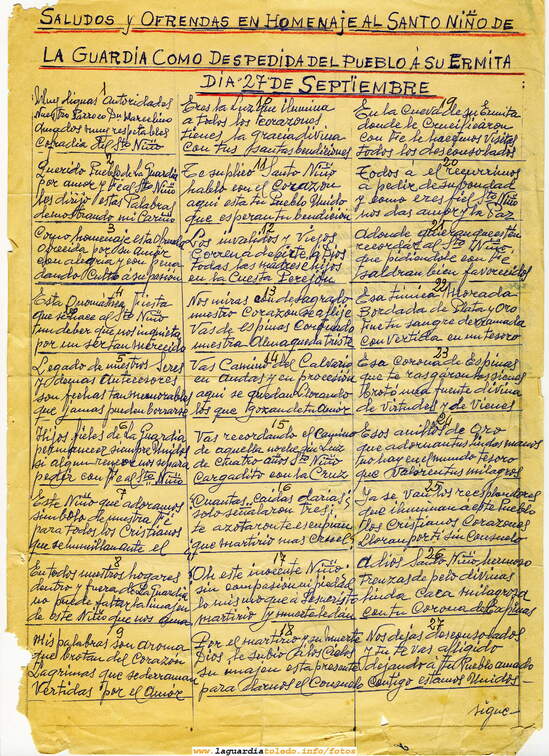 SALUDOS Y OFRENDAS EN HOMENAJE AL SANTO NIÑO DE
LA GUARDIA COMO DESPEDIDA DEL PUEBLO Á SU ERMITA
DIA-27-DE SEPTIEMBRE
1
Dignas Autoridades
Nuestro Parroco Dn Marcelino
respetables
Cofradia del Sto Niño
2
Querido Pueblo de La Guardia
por amor y Fe al Sto Niño
les dirijo estas Palabras
demostrando mi Cariño
3
Como homenaje esta
ofrecida por su amor
con alegria y
dando Culto a su pasión
4
Esta Fiesta
que se hace al Sto Niño
un deber que nos inquieta
por un ser tan merecido
5
Legado de nuestros Seres
y demas Antecesores
son fechas tan memorables
que jamas pueden borrarse
6
Hijos fieles de la Guardia
permanecer siempre Unidos
si algun rencor nos separa
pedir con Fe al Sto Niño
7
Este Niño que adoramos
simbolo de nuestra Fe
para todos los Cristianos
que se humillan ante el
8
En todos nuestros hogares
dentro y fuera de La Guardia
no puede faltar la imajen
de este Niño que nos ama
9
Mis palabras son aroma
que brotan del Corazon
Lagrimas que se derraman
Vertidas por el Amor
Eres la Luz que ilumina
a todos los Corazones
tienes la gracia divina
con tus santas bendiciones
11
Te suplico Santo Niño
hablo con el Corazon
aqui esta tu Pueblo Unido
que esperan tu bendicion
12
Los invalidos y Viejos
Corren a pedirte a Dios
todas las madres e hijos
en la Cuesta
13
Nos miras con desagrado
nuestro Corazon se aflije
Vas de Espinas Coronado
nuestra Alma queda triste
14
Vas Camino del Calvario
en Andas y en procesión
aqui se quedan llorando
los que gozan de tu Amor
15
Vas recordando el Camino
de aquella noche sin luz
de Cuatro años Sto Niño
Cargadito con la Cruz
16
Cuantas Caidas darias
solo señalaron tres
te azotaron te escupian
que martirio mas Cruel
17
Oh este inocente Niño
sin compasión ni piedad
lo mismo que a Jesucristo
martirio y muerte le dan
18
Por el martirio y su muerte
Dios le subio a los Cielos
su imajen esta presente
para darnos el Consuelo
19
En la Cueva de su Ermita
donde le Crucificaron
con Fe le hacemos Visitas
todos los desconsolados
20
Todos a el recurrimos
a pedir de su bondad
y como eres fiel Sto Niño
nos das amor y la Paz
21
Adonde quieran que esten
recordar al Sto Niño
que pidiendole con Fe
saldran bien favorecidos
22
Esa tunica Morada
Bordada de Plata y Oro
fue tu sangre derramada
convertida en un tesoro
23
Esa Corona de Espinas
que te rasgaron las sienes
brotó una fuente divina
de Virtudes y de Vienes
24
Esos anillos de Oro
que adornan tus lindas manos
no hay en el mundo tesoro
que Valoren tus milagros
25
Ya se van los resplandores
que iluminan a este Pueblo
Los Cristianos Corazones
lloran por ti sin Consuelo
26
Adios Santo Niño hermoso
Trenzas de pelo divinas
linda Cara milagrosa
con tu Corona de Espinas
27
Nos dejas desconsolados
y tu te vas afligido
dejando a tu Pueblo amado
contigo estamos Unidos-
sigue-
www.laguardiatoledo.info/fotos